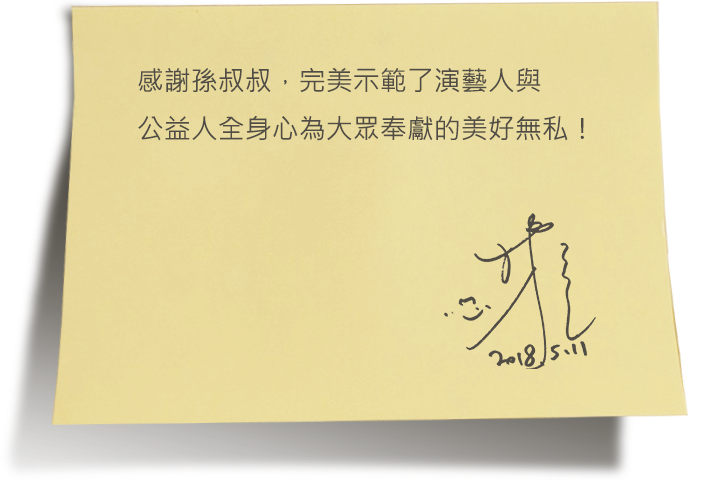 感謝孫叔叔，完美示範了演藝人與
公益人全身心為大眾奉獻的美好無私！
2018.5.11